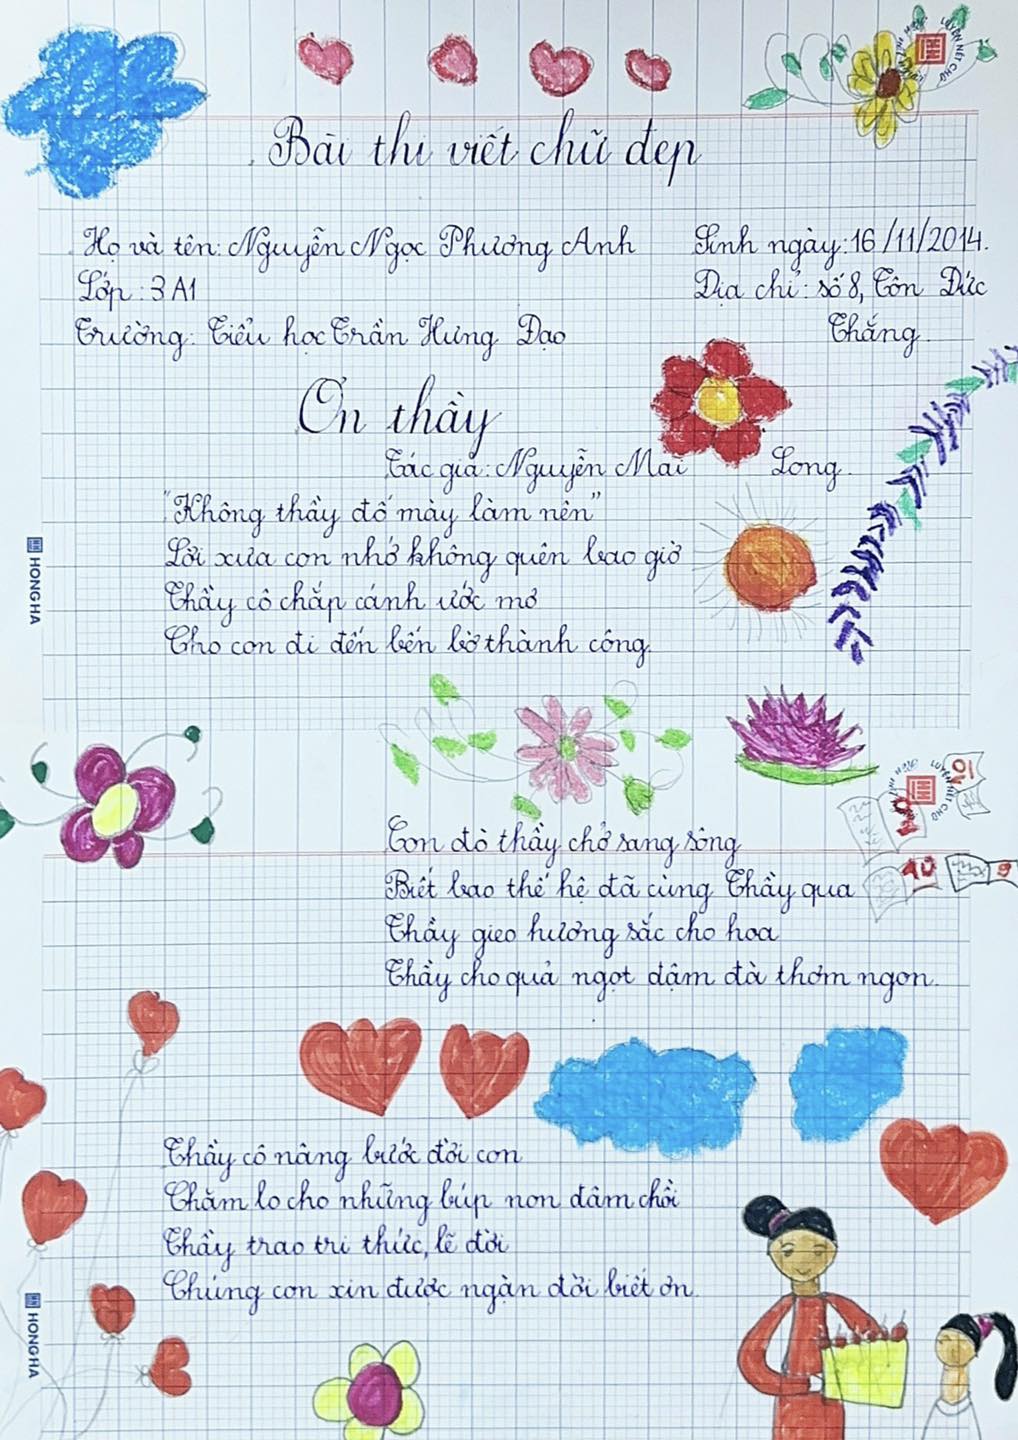 Bài thi viết chữ đẹp
Họ và tên: Nguyễn Ngọc Phương Anh
Sinh ngày: 16/11/2014.
Lớp: 3A1
Địa chỉ: số 8, Tôn Đức
Trường: Tiểu học Trần Hưng Đạo
Thắng.
Ơn thầy
Tác giả: Nguyễn Mai Long.
"Không thầy đố mày làm nên"
Lời xưa con nhớ không quên bao giờ
Thầy cô chắp cánh ước mơ
Cho con đi đến bến bờ thành công.
HONG HA
LUYỆN NÉT CHỮ
10
10
10
9
Con đò thầy chở sang sông
Biết bao thế hệ đã cùng Thầy qua
Thầy gieo hương sắc cho hoa
Thầy cho quả ngọt đậm đà thơm ngon.
Thầy cô nâng bước đời con
Chăm lo cho những búp non đâm chồi
Thầy trao tri thức, lẽ đời
Chúng con xin được ngàn đời biết ơn.
HONG HA